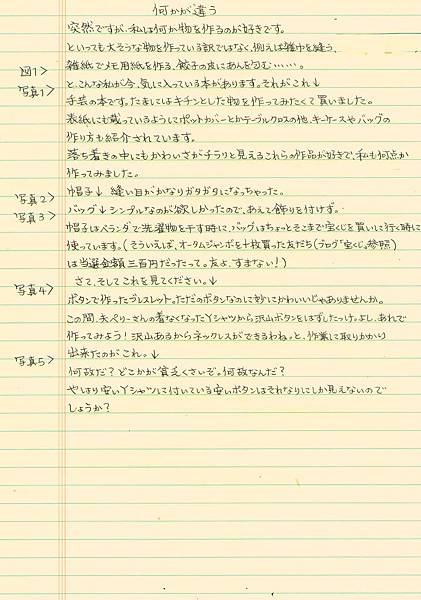 何かが違う
突然ですが、私は何か物を作るのが好きです。
といっても大そうな物を作っている訳ではなく、例えば雑巾を縫う、
図1> 雑紙でメモ用紙を作る、餃子の皮にあんを包む……。
写真1> と、こんな私が今、気に入っている本があります。それがこれ↓
手芸の本です。たまにはキチンとした物を作ってみたくて買いました。
表紙にも載っているようにポットカバーとかテーブルクロスの他、キーケースやバッグの
作り方も紹介されています。
落ち着きの中にもかわいさがチラリと見えるこれらの作品が好きで、私も何点か
作ってみました。
写真2> 帽子↓ 縫い目がかなりガタガタになっちゃった。
写真3> バッグ↓ シンプルなのが欲しかったので、あえて飾りを付けず。
帽子はベランダで洗濯物を干す時に、バッグはちょっとそこまで宝くじを買いに行く時に
使っています。(そういえば、オータムジャンボを十枚買った友だち(ブログ「宝くじ」参照)
は当選金額三百円だったって。友よ、すまない!)
さて、そしてこれを見てください。↓
写真4> ボタンで作ったブレスレット。ただのボタンなのに妙にかわいいじゃありませんか。
この間、夫ペリーさんの着なくなったYシャツから沢山ボタンをはずしたっけ。よし、あれで
作ってみよう!沢山あるからネックレスができるわね。と、作業に取りかかり
写真5> 出来たのがこれ。↓
何故だ?どこかが貧乏くさいぞ。何故なんだ?
やはり安いYシャツに付いている安いボタンはそれなりにしか見えないので
しょうか?